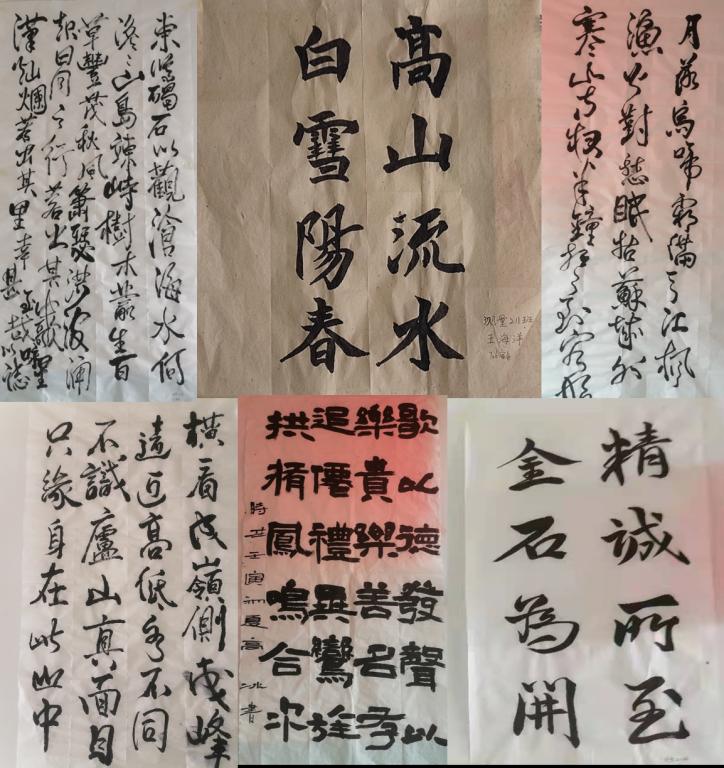 東臨碣石以觀滄海水何
澹澹山島竦峙樹木叢生百
草豐茂秋風蕭瑟洪波涌
起日月之行若出其中星
漢燦爛若出其里幸甚至哉
高山流水
白雪陽春
测量211班
王海洋
月落烏啼霜滿天江楓
漁火對愁眠姑蘇城外
寒山寺夜半鐘聲到客船
橫看成嶺側成峰
遠近高低各不同
不識廬山真面目
只緣身在此山中
歌以德發聲以
樂貴樂善名存
追禮異鸞
拱鳳鳴合次
時在壬寅初夏高冰書
精誠所至
金石為開